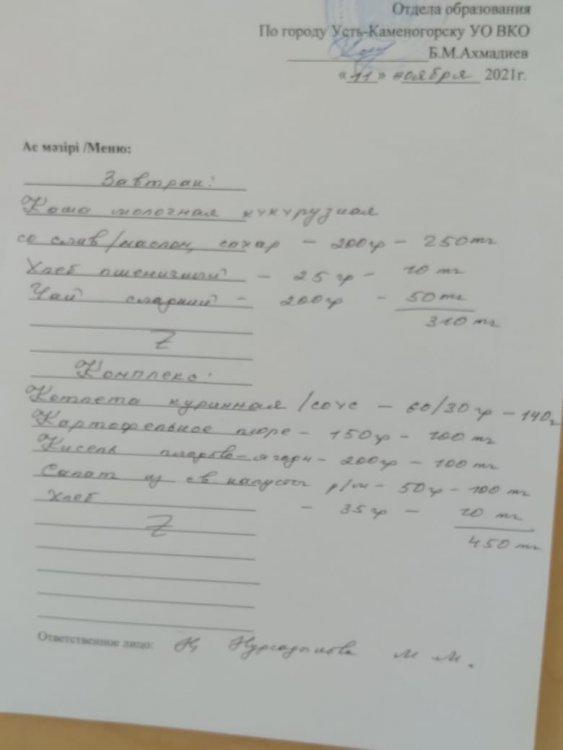 Отдела образования
По городу Усть-Каменогорску УО ВКО
Б.М.Ахмадиев
«11» ноября 2021г.
Ас мәзірі /Меню:
Завтрак:
Каша молочная кукурузная
со слив/маслом, сахар - 200гр - 250тг
Хлеб пшеничный - 25гр - 10тг
Чай сладкий - 200гр - 50тг
310тг
Z
Комплекс:
Котлета куринная /соус - 60/30гр - 140
Картофельное пюре - 150гр - 100тг
Кисель плодово-ягодн - 200гр - 100тг
Салат из св капусты р/м - 50гр - 100тг
Хлеб - 35гр - 10тг
Z
450тг
Ответственное лицо: М М.